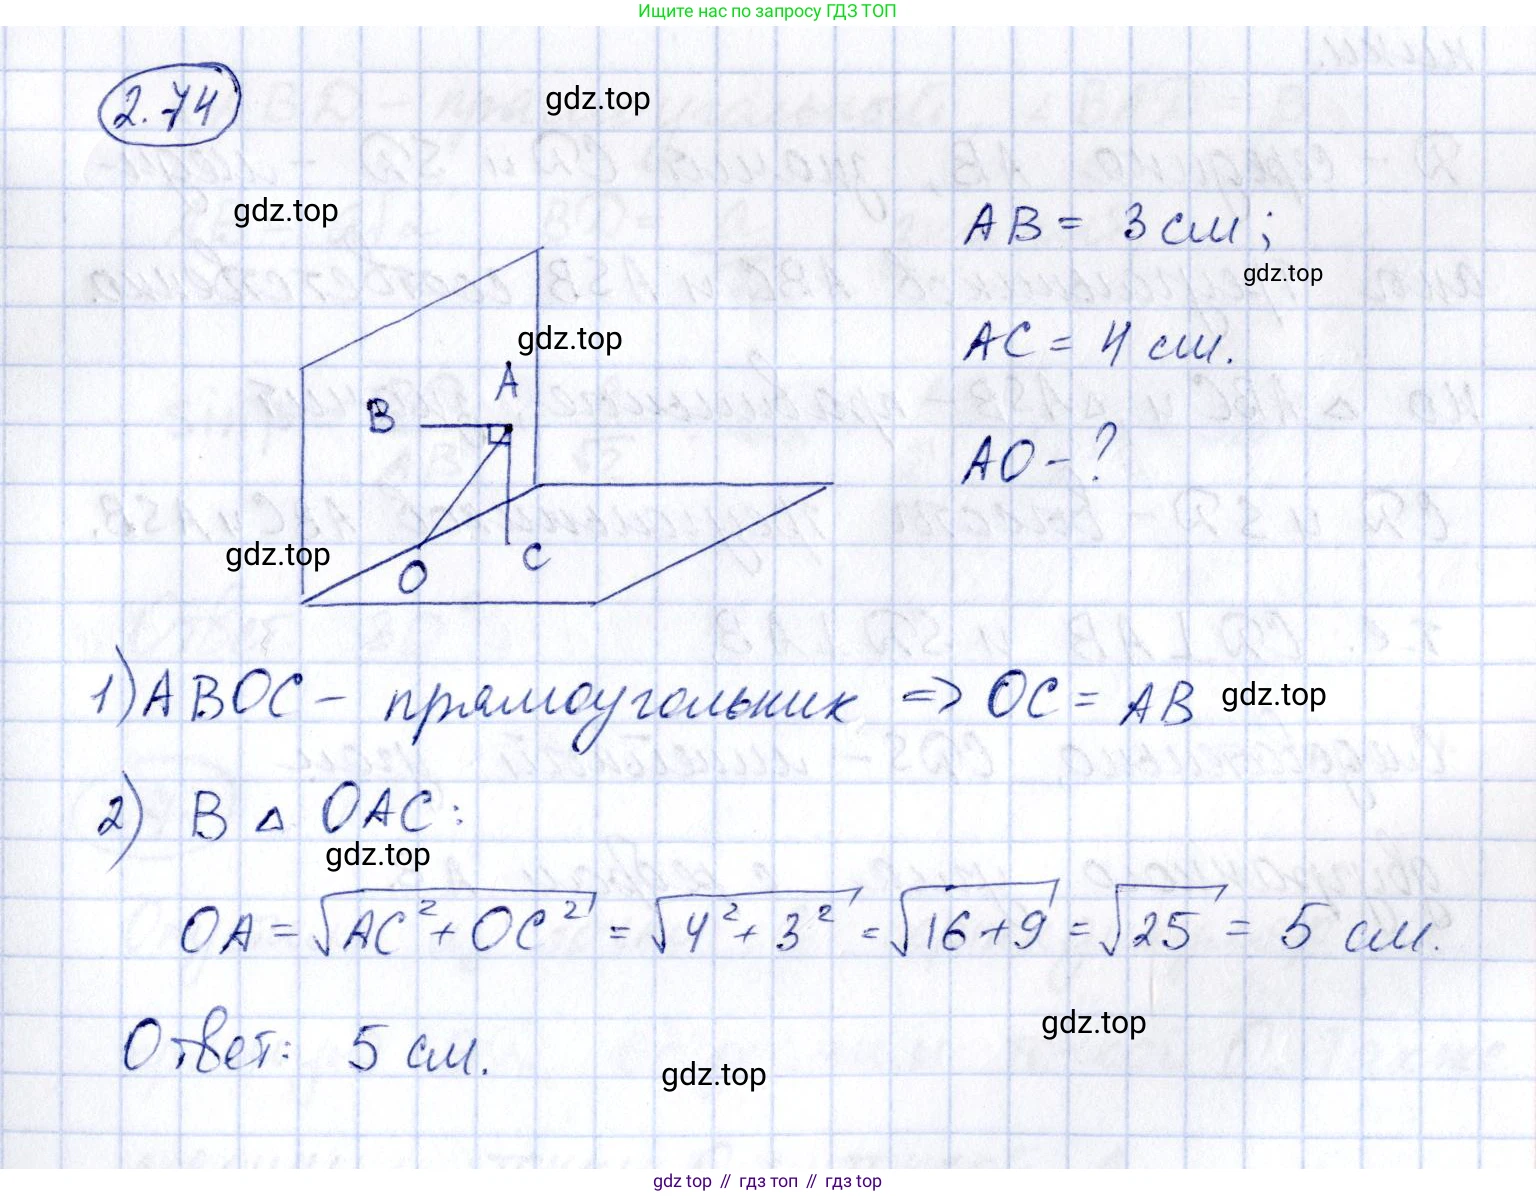 Ищите нас по запросу ГДЗ ТОП
2.74
gdz.top
gdz.top
AB = 3 см;
gdz.top
gdz.top
AC = 4 см.
A
B
AO - ?
gdz.top
O
C
1) ABOC - прямоугольник => OC = AB
gdz.top
2) В △ OAC:
gdz.top
OA = √AC² + OC² = √4² + 3² = √16 + 9 = √25 = 5 см.
gdz.top
Ответ: 5 см.
gdz.top
gdz top // гдз топ // гдз top